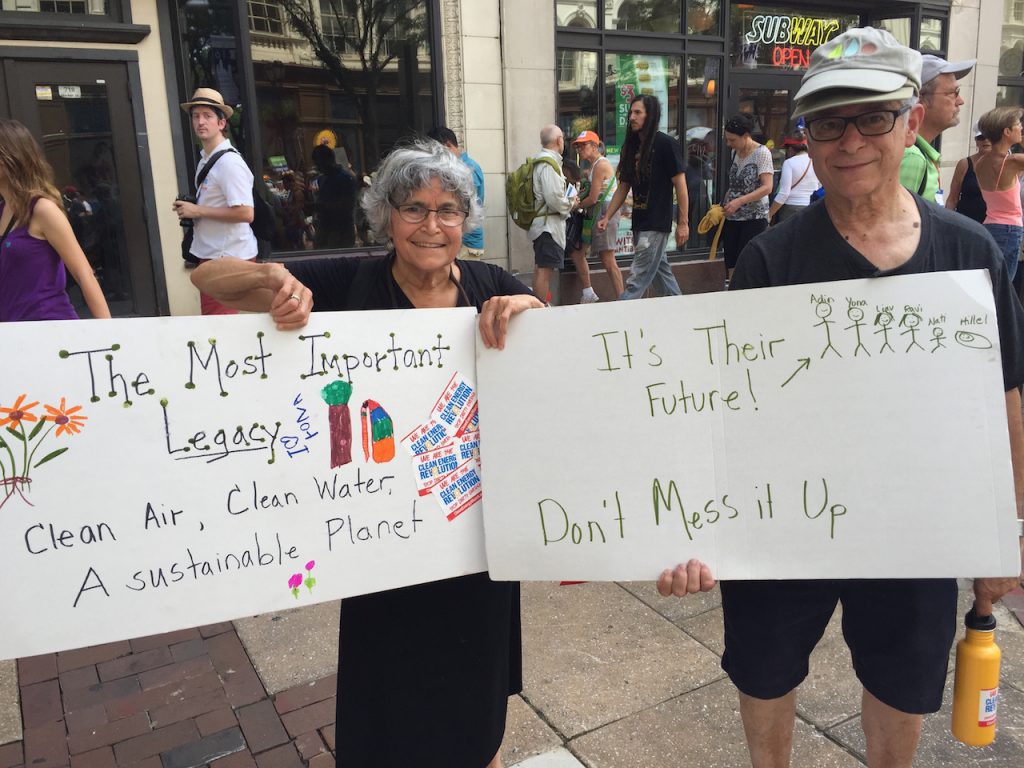 SUBWAY
OPEN
The Most Important
Legacy
Clean Air, Clean Water,
A sustainable Planet
WE ARE THE
CLEAN ENERGY
REVOLUTION
It's Their
Future!
Adin Yona Liev Ravi Nati Hillel
Don't Mess it Up